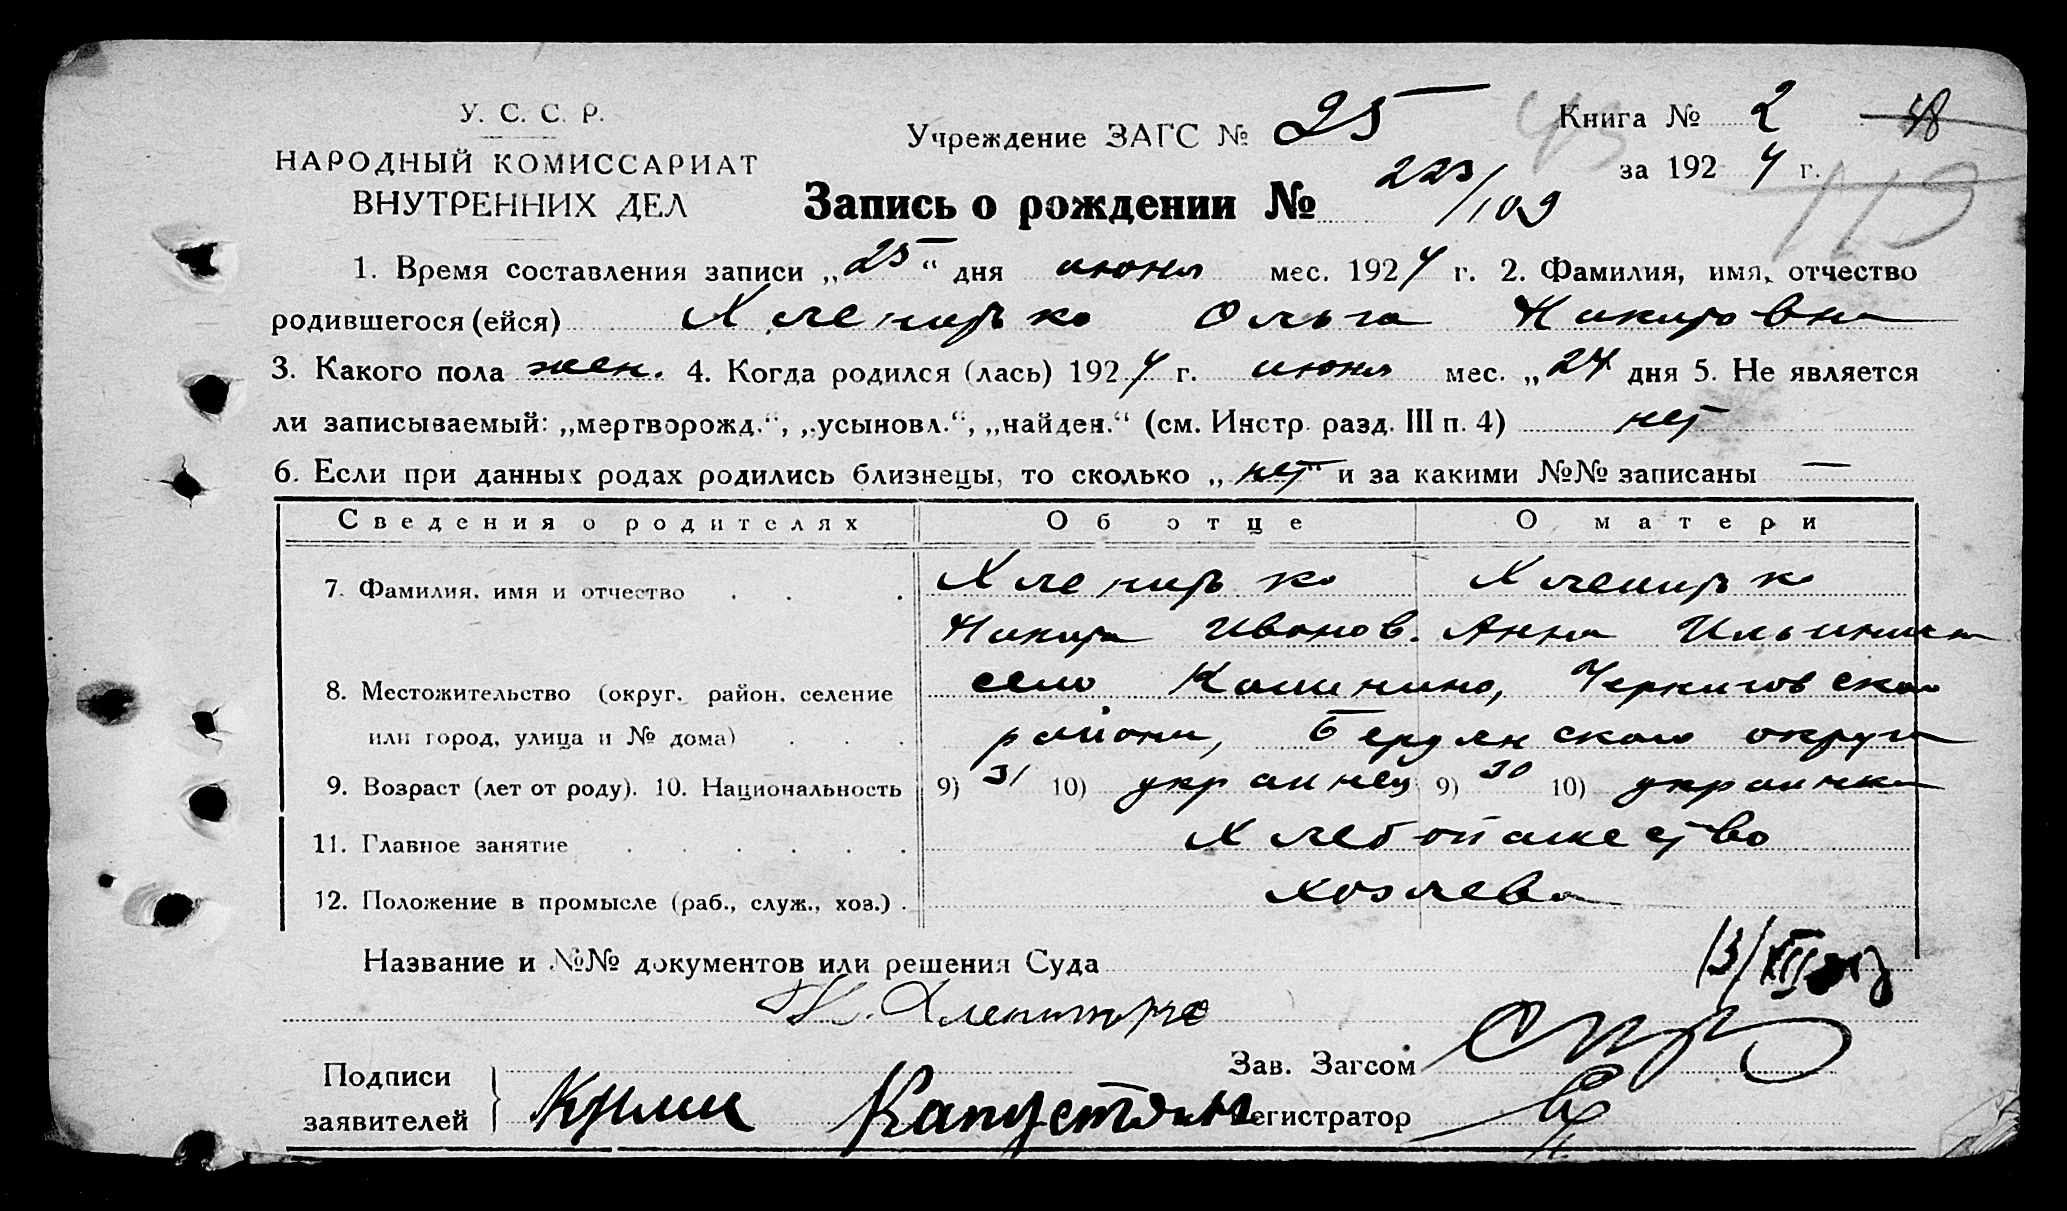 У. С. С. Р.
НАРОДНЫЙ КОМИССАРИАТ
ВНУТРЕННИХ ДЕЛ
Учреждение ЗАГС № 25
Книга № 2
за 1924 г.
113
Запись о рождении № 223/109
1. Время составления записи „25“ дня июня мес. 1924 г. 2. Фамилия, имя, отчество
родившегося (ейся) Ольга Никитовна
3. Какого пола жен. 4. Когда родился (лась) 1924 г. июня мес. „24 дня 5. Не является
ли записываемый: „мертворожд.“, „усыновл.“, „найден.“ (см. Инстр. разд. III п. 4) нет
6. Если при данных родах родились близнецы, то сколько „нет“ и за какими №№ записаны —
Сведения о родителях Об отце О матери
7. Фамилия, имя и отчество
Никита Иванов. Анна Ильинична
8. Местожительство (округ, район, селение село Черниговского
или город, улица и № дома) района, Бердянского округа
9. Возраст (лет от роду). 10. Национальность 9) 31 10) украинец 9) 30 10) украинка
11. Главное занятие Хлебопашество
12. Положение в промысле (раб., служ., хоз.) хозяева
Название и №№ документов или решения Суда
Зав. Загсом
Подписи
заявителей Капустян Регистратор